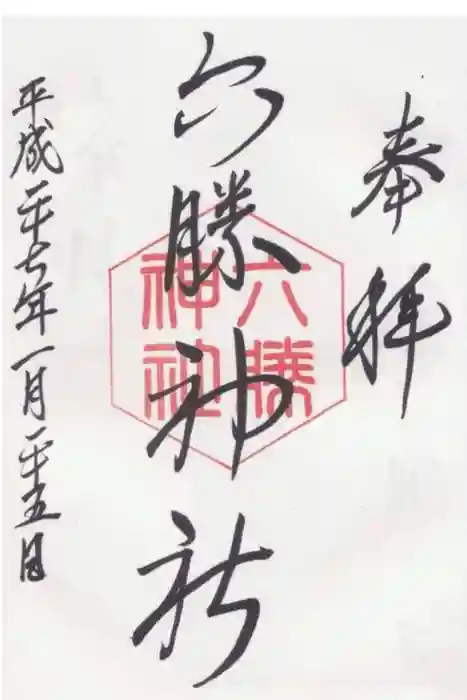 奉拝
六勝神社
六勝
神社
平成二十七年一月二十五日